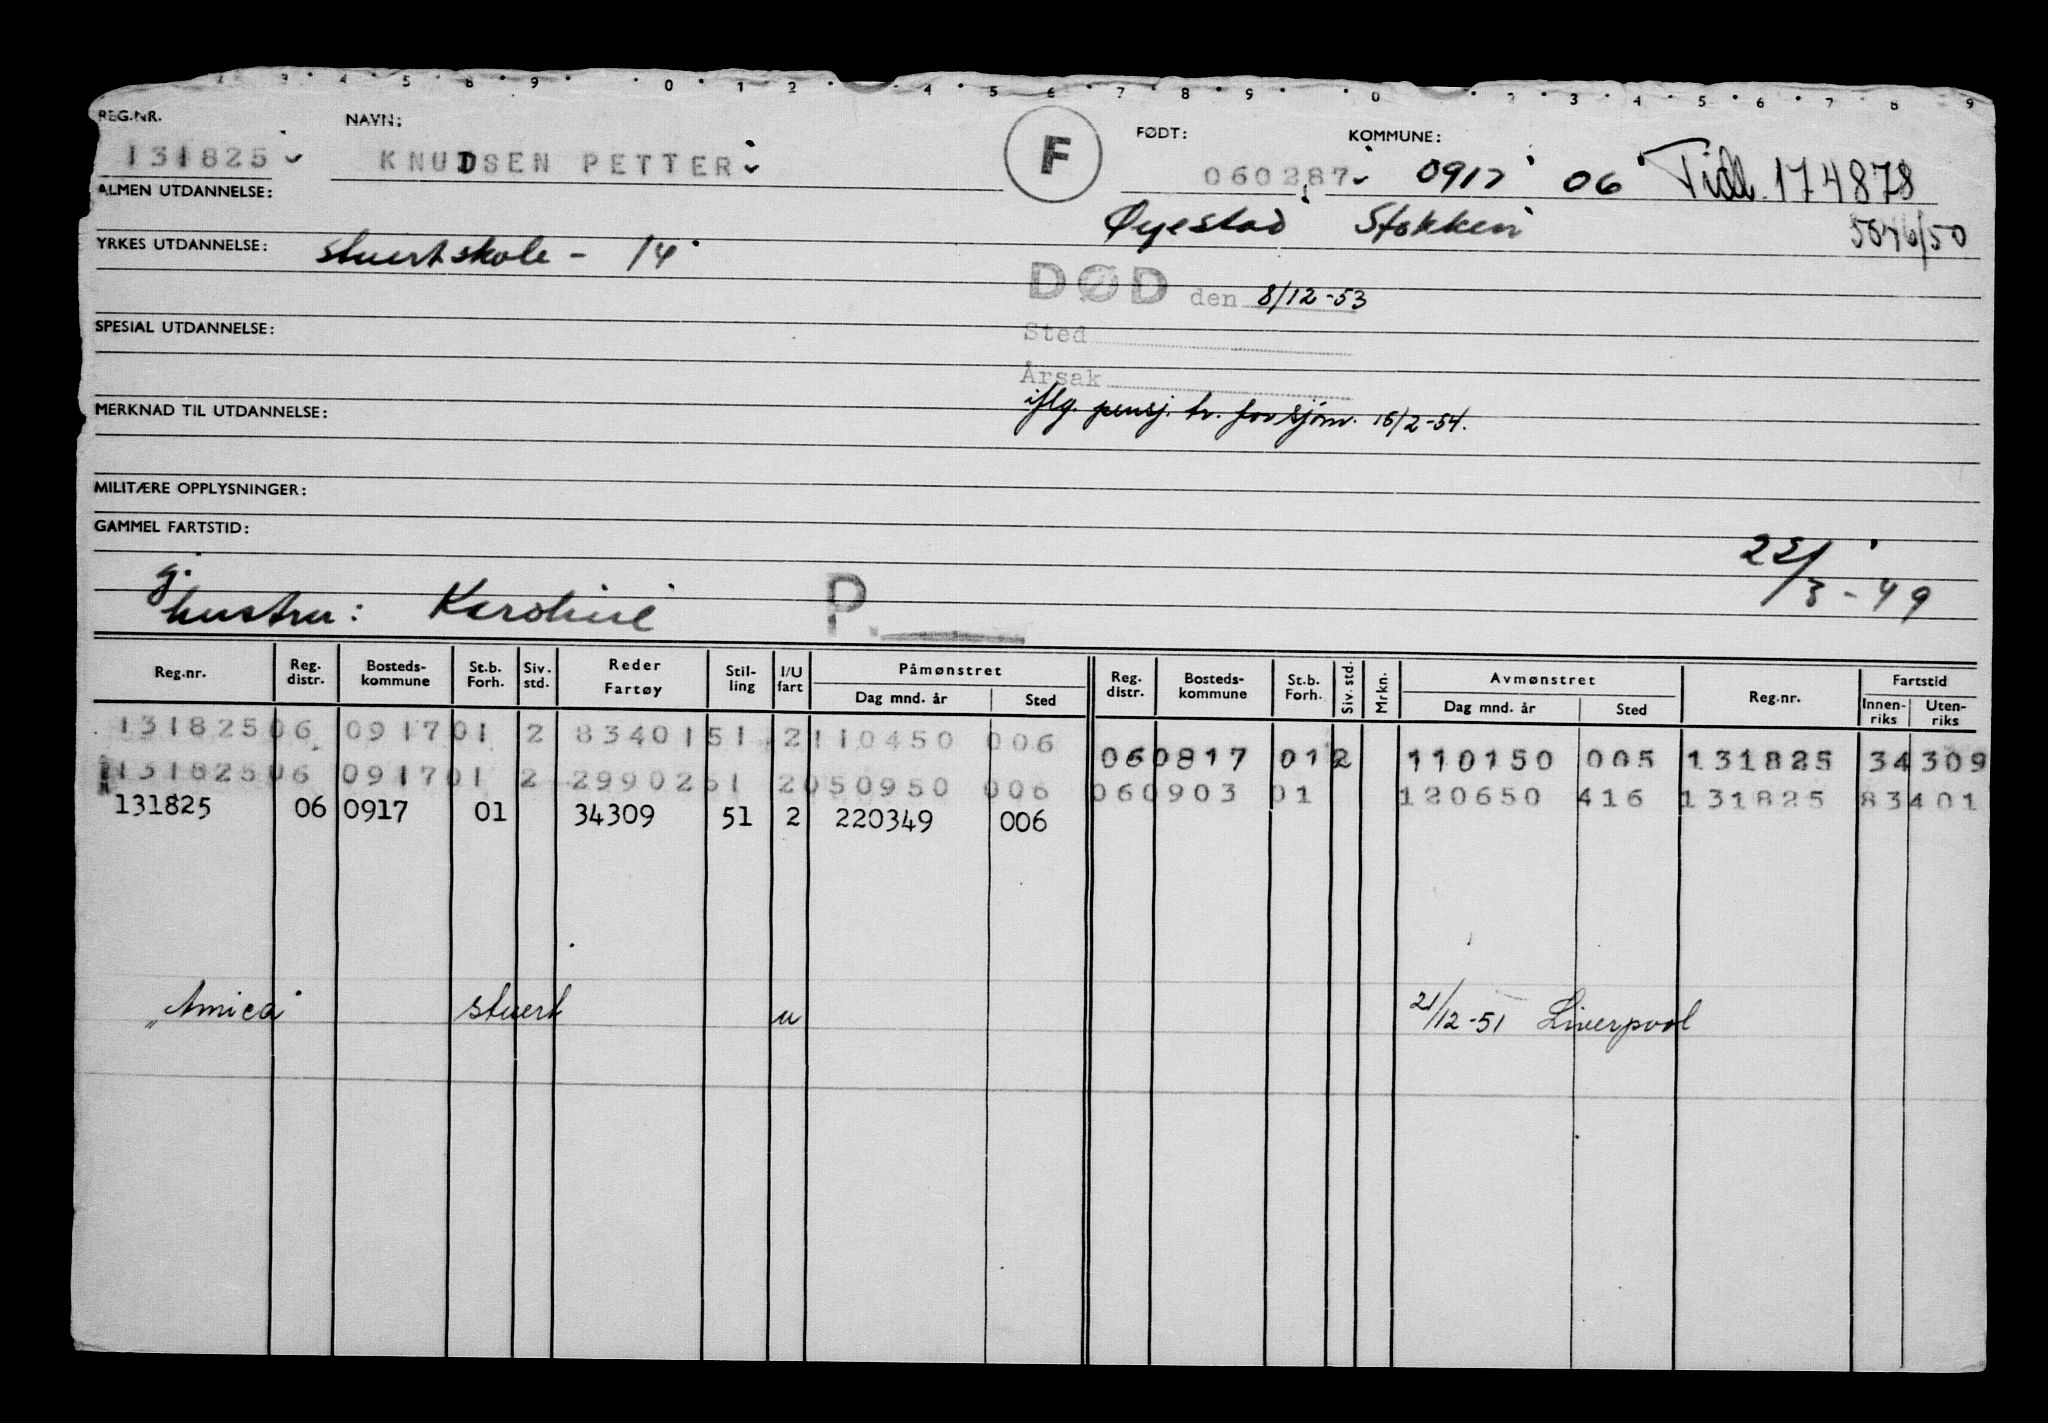 2 3 4 5 8 9 0 1 2 4 5 6 7 8 9 0 2 3 4 5 6 7 8 9
REG.NR. NAVN: F FØDT: KOMMUNE:
131825 KNUDSEN PETTER 060287 0917 06 Tidl. 174878
ALMEN UTDANNELSE: Øyestad Stokken 5646/50
YRKES UTDANNELSE: stuertskole - 14
DØD den 8/12-53
SPESIAL UTDANNELSE: Sted
Årsak
MERKNAD TIL UTDANNELSE: iflg. pensj. tr. for sjøm. 16/2-54.
MILITÆRE OPPLYSNINGER:
GAMMEL FARTSTID:
22/3-49
g.
hustru: Karoline P.
Reg.nr. Reg. distr. Bosteds-kommune St.b. Forh. Siv. std. Reder Fartøy Stil-ling I/U fart Påmønstret Dag mnd. år Sted Reg. distr. Bosteds-kommune St.b. Forh. Siv. std. Mrkn. Avmønstret Dag mnd. år Sted Reg.nr. Fartstid Innen-riks Uten-riks
131825 06 0917 01 2 83401 51 2 110450 006 06 0817 01 2 110150 005 131825 34309
131825 06 0917 01 2 29902 51 2 050950 006 06 0903 01 120650 416 131825 83401
131825 06 0917 01 34309 51 2 220349 006
"Amica" stuert u 21/12-51 Liverpool